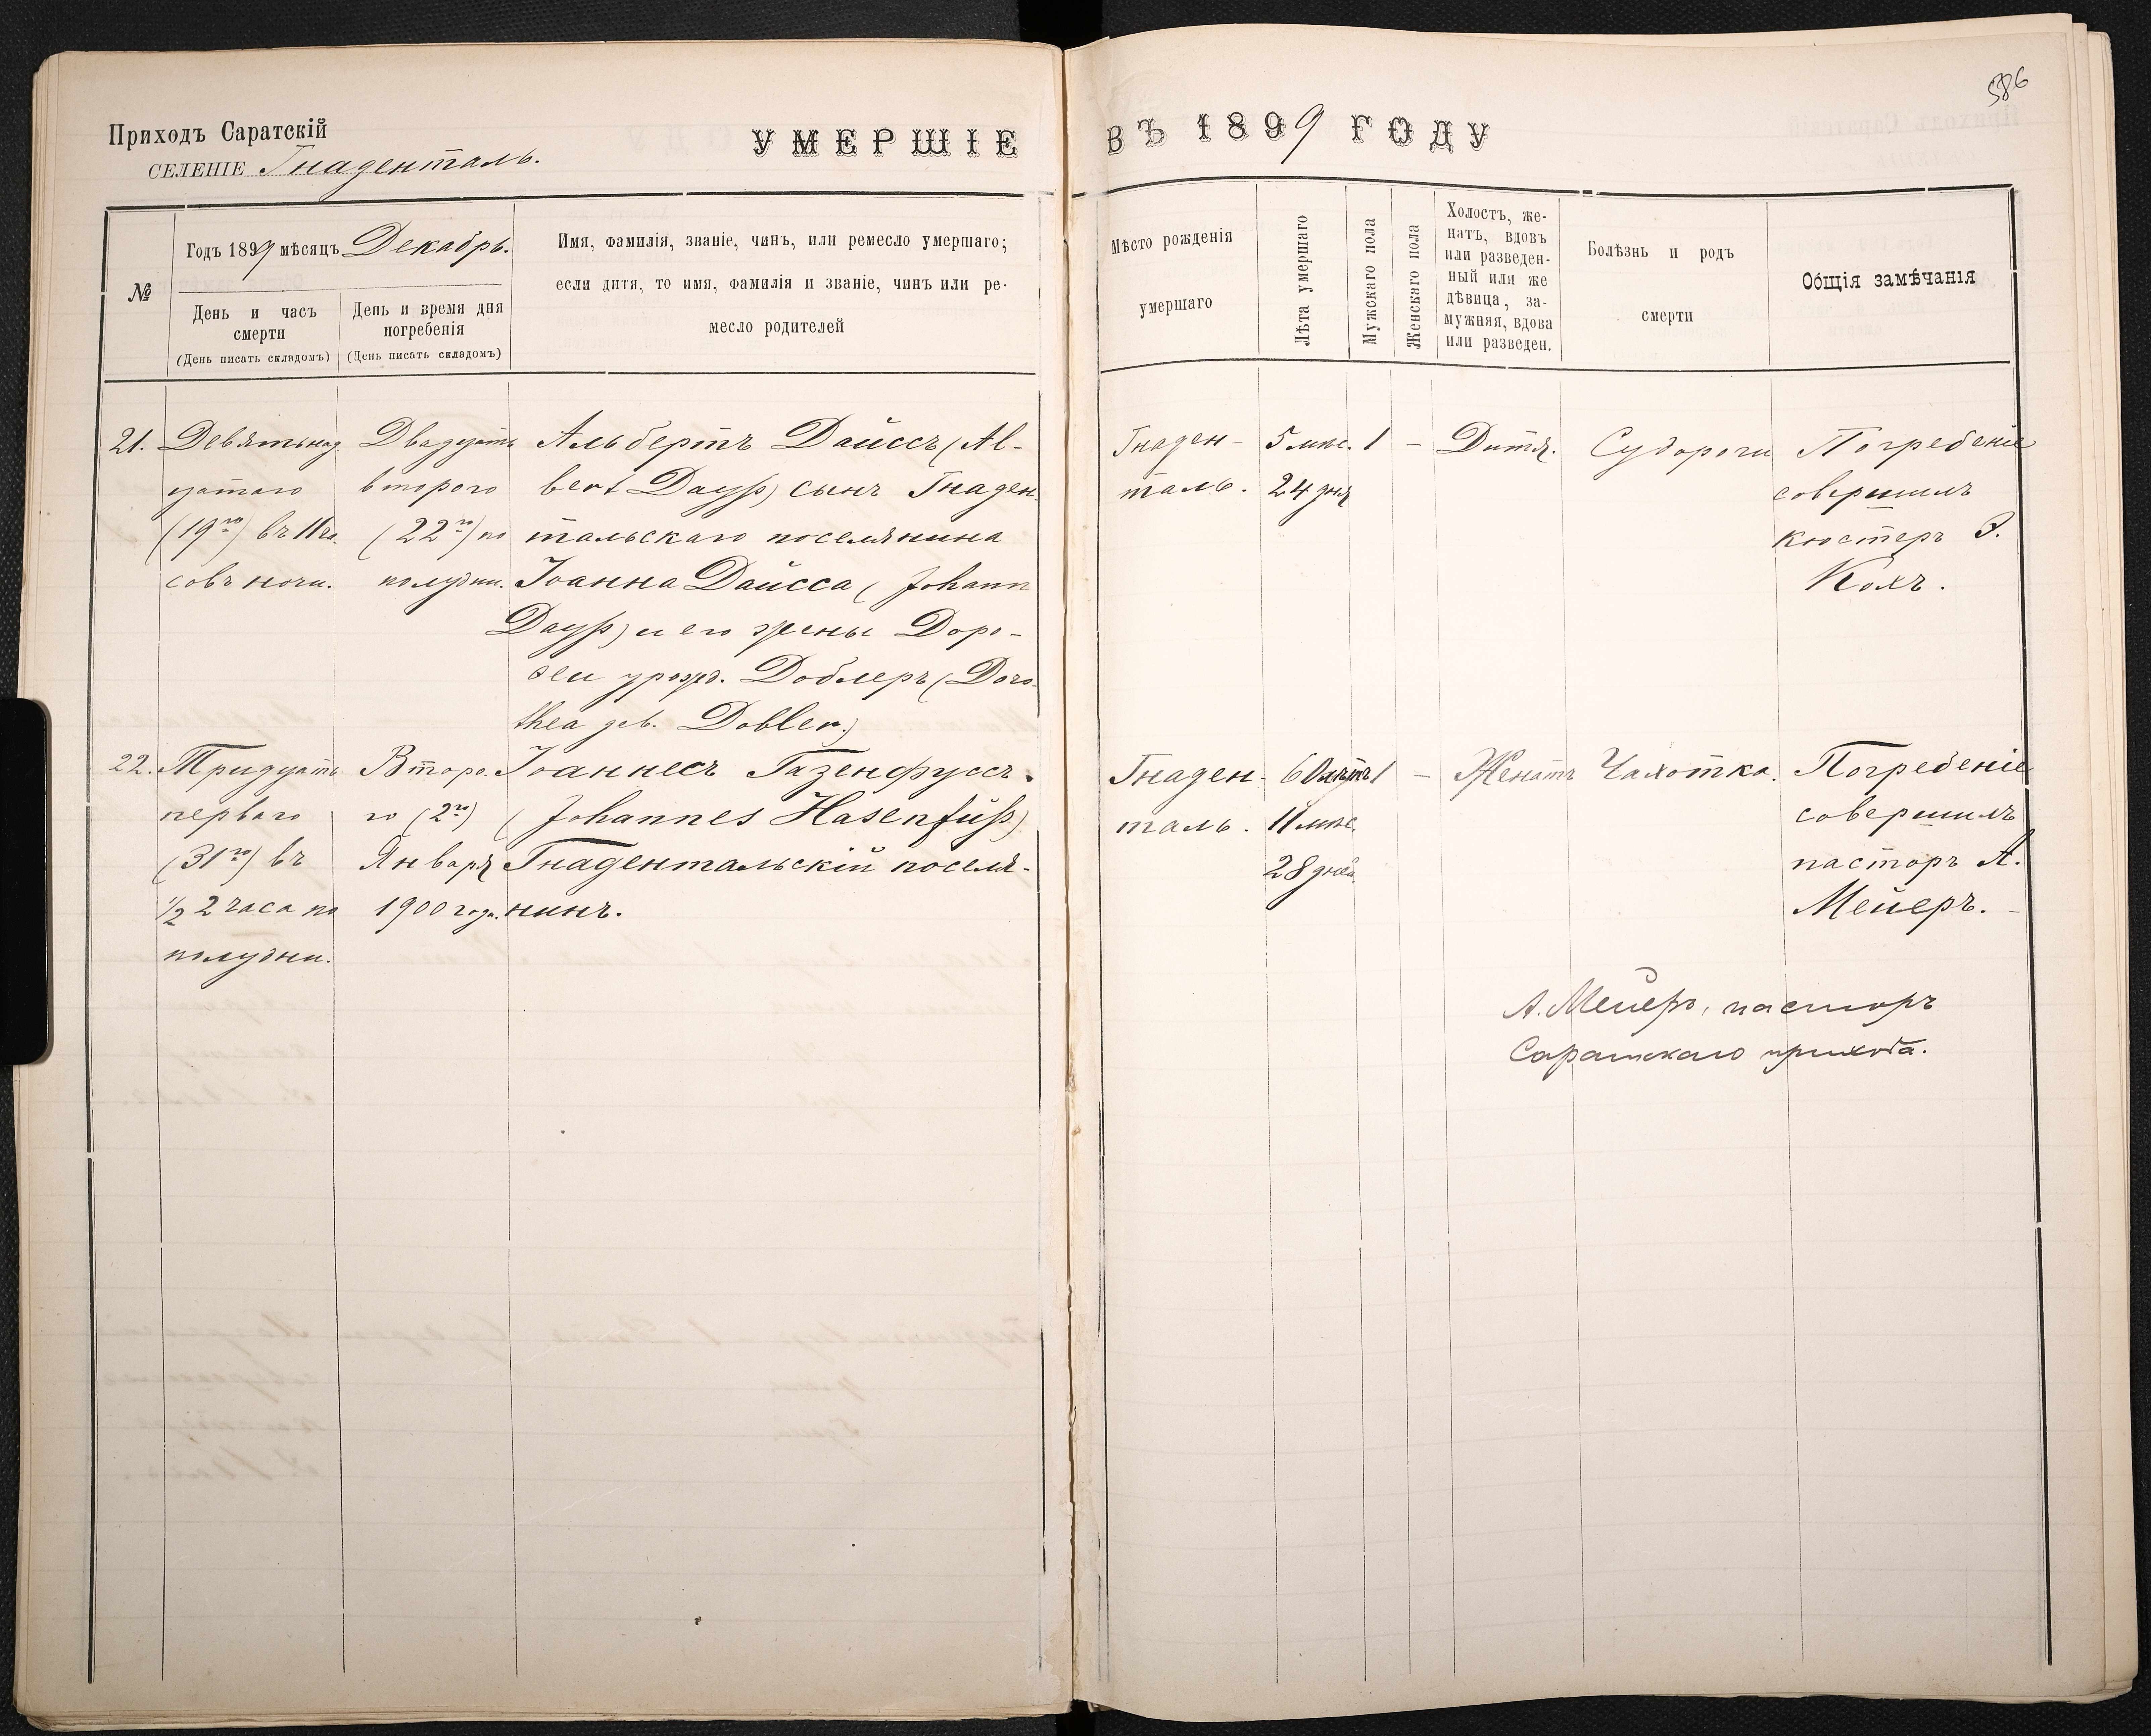 586
Приходъ Саратскій
СЕЛЕНІЕ Гнаденталь.
УМЕРШІЕ
ВЪ 1899 ГОДУ
№
Годъ 1899 мѣсяцъ Декабрь.
День и часъ
смерти
(День писать складомъ)
День и время дня
погребенія
(День писать складомъ)
Имя, фамилія, званіе, чинъ, или ремесло умершаго;
если дитя, то имя, фамилія и званіе, чинъ или ре-
месло родителей
Мѣсто рожденія
умершаго
Лѣта умершаго
Мужскаго пола
Женскаго пола
Холостъ, же-
натъ, вдовъ
или разведен-
ный или же
дѣвица, за-
мужняя, вдова
или разведен.
Болѣзнь и родъ
смерти
Общія замѣчанія
21.
Девятнад
цатаго
(19го) въ 11 ча
совъ ночи.
Двадцать
второго
(22го) по
полудни.
Альбертъ Дайссъ (Al-
bert Dayß) сынъ Гнаден
тальскаго поселянина
Іоанна Дайсса (Johann
Dayß) и его жены Доро-
ѳеи урожд. Доблеръ (Doro-
thea geb. Dobler.)
Гнаден-
таль.
5 мѣс.
24 дня
1
-
Дитя.
Судороги
Погребеніе
совершилъ
кюстеръ З.
Кохъ.
22.
Тридцать
перваго
(31го) въ
1/2 2 часа по
полудни.
Второ-
го (2го)
Января
1900 года.
Іоаннесъ Газенфуссъ.
(Johannes Hasenfuß)
Гнадентальскій поселя-
нинъ.
Гнаден-
таль.
60 лѣтъ
11 мѣс.
28 дней
1
-
Женатъ
Чахотка.
Погребеніе
совершилъ
пасторъ А.
Мейеръ.
А. Мейеръ, пасторъ
Саратскаго прихода.